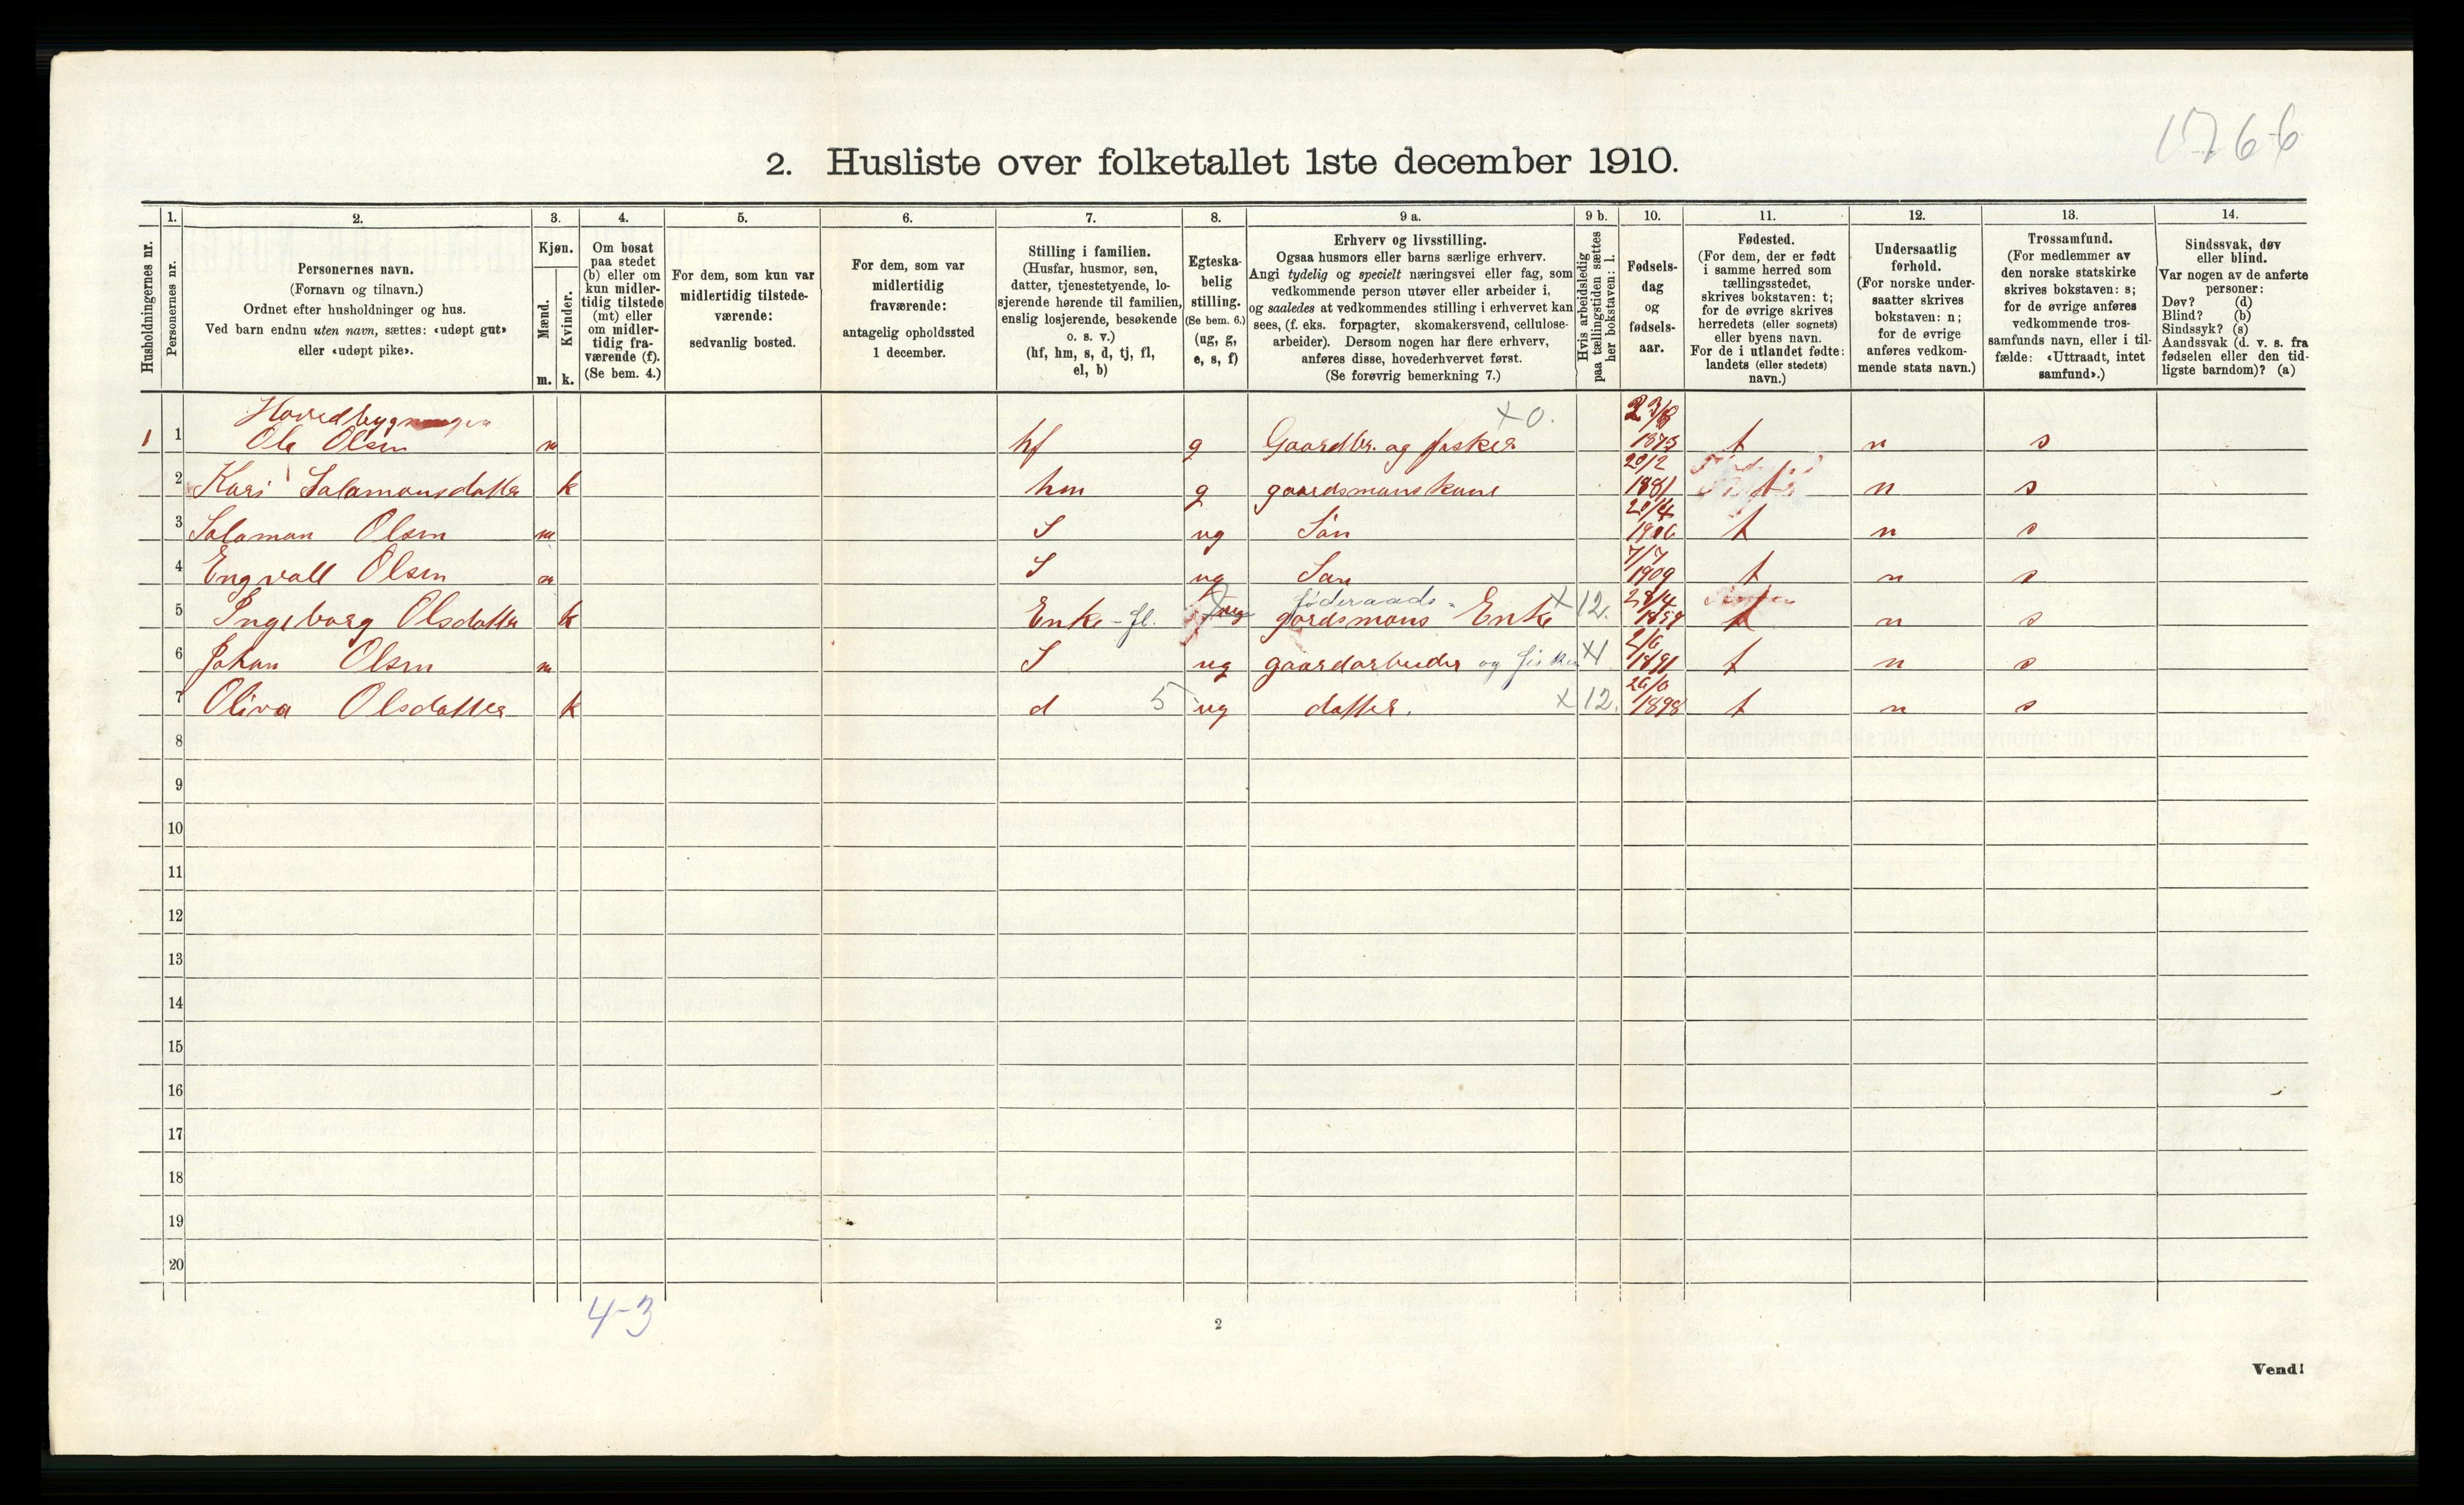 1766
2. Husliste over folketallet 1ste december 1910.
1. 2. 3. 4. 5. 6. 7. 8. 9 a. 9 b. 10. 11. 12. 13. 14.
Husholdningernes nr.
Personernes nr.
Personernes navn.
(Fornavn og tilnavn.)
Ordnet efter husholdninger og hus.
Ved barn endnu uten navn, sættes: «udøpt gut»
eller «udøpt pike».
Kjøn.
Mænd.
Kvinder.
m. k.
Om bosat
paa stedet
(b) eller om
kun midler-
tidig tilstede
(mt) eller
om midler-
tidig fra-
værende (f).
(Se bem. 4.)
For dem, som kun var
midlertidig tilstede-
værende:
sedvanlig bosted.
For dem, som var
midlertidig
fraværende:
antagelig opholdssted
1 december.
Stilling i familien.
(Husfar, husmor, søn,
datter, tjenestetyende, lo-
sjerende hørende til familien,
enslig losjerende, besøkende
o. s. v.)
(hf, hm, s, d, tj, fl,
el, b)
Egteska-
belig
stilling.
(Se bem. 6.)
(ug, g,
e, s, f)
Erhverv og livsstilling.
Ogsaa husmors eller barns særlige erhverv.
Angi tydelig og specielt næringsvei eller fag, som
vedkommende person utøver eller arbeider i,
og saaledes at vedkommendes stilling i erhvervet kan
sees, (f. eks. forpagter, skomakersvend, cellulose-
arbeider). Dersom nogen har flere erhverv,
anføres disse, hovederhvervet først.
(Se forøvrig bemerkning 7.)
Hvis arbeidsledig
paa tællingstiden sættes
her bokstaven: l.
Fødsels-
dag
og
fødsels-
aar.
Fødested.
(For dem, der er født
i samme herred som
tællingsstedet,
skrives bokstaven: t;
for de øvrige skrives
herredets (eller sognets)
eller byens navn.
For de i utlandet fødte:
landets (eller stedets)
navn.)
Undersaatlig
forhold.
(For norske under-
saatter skrives
bokstaven: n;
for de øvrige
anføres vedkom-
mende stats navn.)
Trossamfund.
(For medlemmer av
den norske statskirke
skrives bokstaven: s;
for de øvrige anføres
vedkommende tros-
samfunds navn, eller i til-
fælde: «Uttraadt, intet
samfund».)
Sindssvak, døv
eller blind.
Var nogen av de anførte
personer:
Døv? (d)
Blind? (b)
Sindssyk? (s)
Aandssvak (d. v. s. fra
fødselen eller den tid-
ligste barndom)? (a)
Hovedbygningen x0.
1 1 Ole Olsen m hf g Gaardbr. og fisker 1875 t n s
20/2
2 Kari Salamonsdatter k hm g gaardsmans kone 1881 t n s
20/4
3 Salamon Olsen m S ug Sön 1906 t n s
7/7
4 Engvall Olsen m S ug Sön 1909 t n s
föderaads- 28/4
5 Ingeborg Olsdatter k Enke - fl. gordsmans Enke x12. 1859 t n s
6 Johan Olsen m S ug gaardarbeider og fisker x1 1891 t n s
7 Oliva Olsdatter k d 5 ug datter. x12. 1898 t n s
8
9
10
11
12
13
14
15
16
17
18
19
20
4-3
2
Vend!